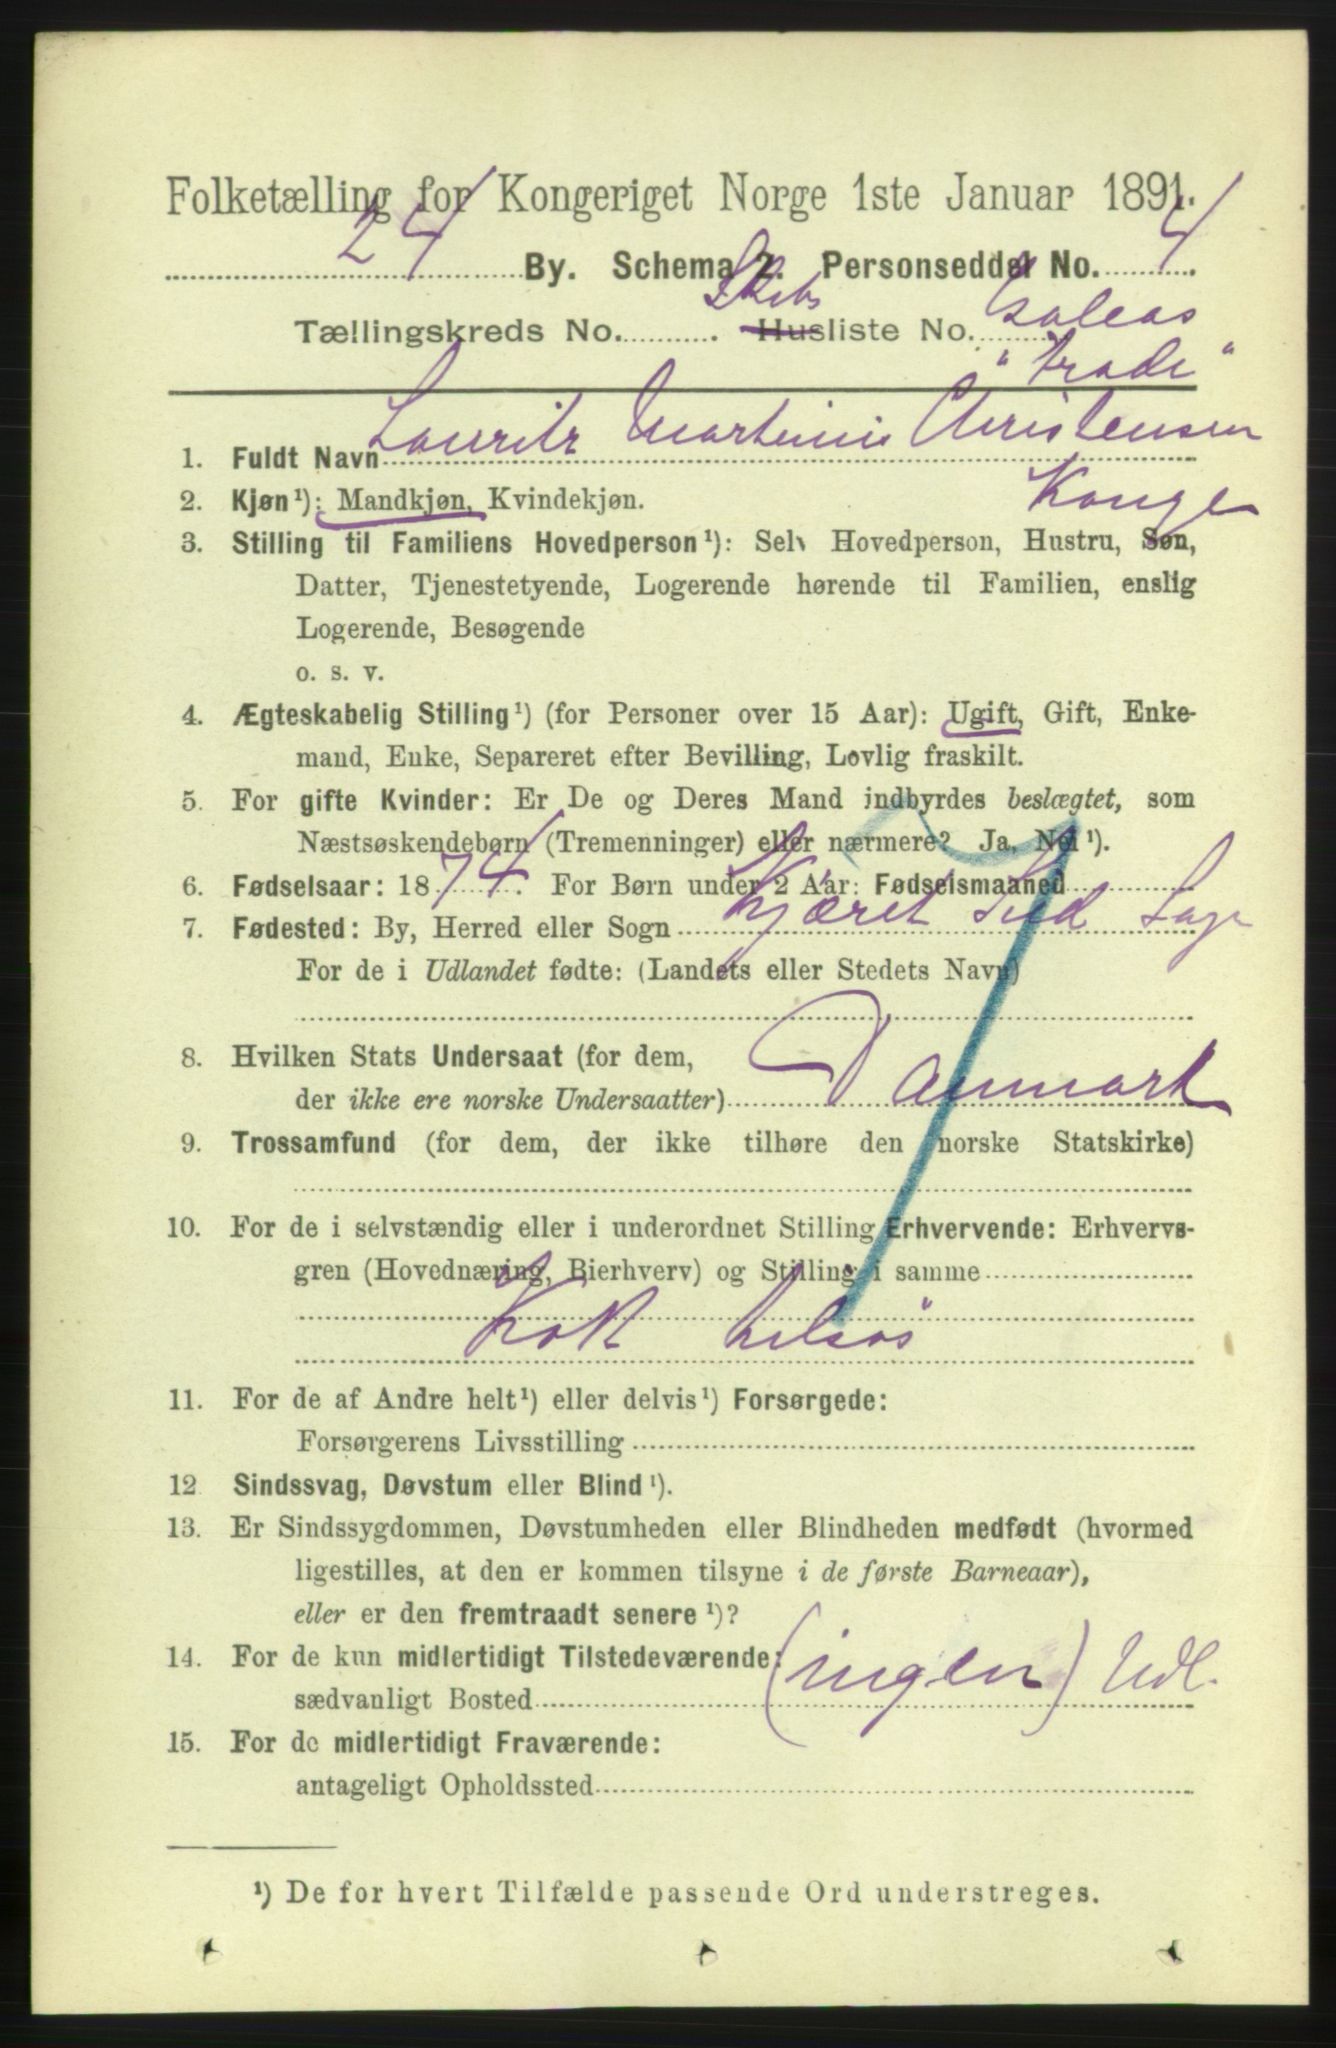 Folketælling for Kongeriget Norge 1ste Januar 1891.
24 By. Schema 2. Personseddel No. 4
Tællingskreds No. . Skibs Husliste No. Galeas
"Frode"
1. Fuldt Navn Lauritz Martinus Christensen
Konge
2. Kjøn¹): Mandkjøn, Kvindekjøn.
3. Stilling til Familiens Hovedperson¹): Selv Hovedperson, Hustru, Søn,
Datter, Tjenestetyende, Logerende hørende til Familien, enslig
Logerende, Besøgende
o. s. v.
4. Ægteskabelig Stilling¹) (for Personer over 15 Aar): Ugift, Gift, Enke-
mand, Enke, Separeret efter Bevilling, Lovlig fraskilt.
5. For gifte Kvinder: Er De og Deres Mand indbyrdes beslægtet, som
Næstsøskendebørn (Tremenninger) eller nærmere? Ja, Nei¹).
6. Fødselsaar: 1874. For Børn under 2 Aar: Fødselsmaaned
7. Fødested: By, Herred eller Sogn
For de i Udlandet fødte: (Landets eller Stedets Navn)
8. Hvilken Stats Undersaat (for dem,
der ikke ere norske Undersaatter) Danmark
9. Trossamfund (for dem, der ikke tilhøre den norske Statskirke)
10. For de i selvstændig eller i underordnet Stilling Erhvervende: Erhvervs-
gren (Hovednæring, Bierhverv) og Stilling i samme
Kok
11. For de af Andre helt¹) eller delvis¹) Forsørgede:
Forsørgerens Livsstilling
12 Sindssvag, Døvstum eller Blind¹).
13. Er Sindssygdommen, Døvstumheden eller Blindheden medfødt (hvormed
ligestilles, at den er kommen tilsyne i de første Barneaar),
eller er den fremtraadt senere¹)?
14. For de kun midlertidigt Tilstedeværende:
sædvanligt Bosted (ingen) Udl.
15. For de midlertidigt Fraværende:
antageligt Opholdssted
¹) De for hvert Tilfælde passende Ord understreges.